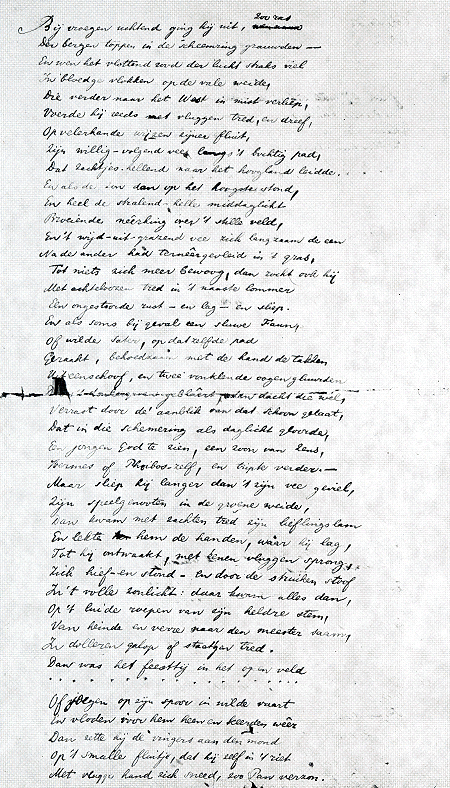 Zoo ras
Bij vroegen uchtend ging hij uit,
Der bergen toppen in de scheemring grauwden —
En wen het vlottend rood der lucht straks viel
In bloedge vlokken op de vale weide,
Die verder naar het West in mist verliep,
Voerde hij reeds met vluggen tred, en dreef,
Op velerhande wijzen zijner fluit,
Zijn willig-volgend vee langs 't bochtig pad,
Dat zachtjes-hellend naar het hoogland leidde...
En als de zon dan op het hoogste stond,
En heel de stralend-helle middaglicht
Broeiende neerhing over 't stille veld,
En 't wijd-uit-grazend vee zich langzaam de een
Na de ander had terneêrgevleid in 't gras,
Tot niets zich meer bewoog, dan zocht ook hij
Met achteloozen tred in 't naaste lommer
Een ongestoorde rust — en lag — en sliep.
En als soms bij geval een sluwe Faun,
Of wilde Sater, op datzelfde pad
Geraakt, behoedzaam met de hand de takken
Uiteenschoof, en twee vonklende oogen gluurden
dan dacht die wel,
Verrast door de aanblik van dat schoon gelaat,
Dat in die schemering als daglicht gloorde,
Een jongen God te zien, een zoon van Zeus,
Hermes of Phoibos-zelf, en sliep verder. —
Maar sliep hij langer dan 't zijn vee geviel,
Zijn speelgenooten in de groene weide,
Dan kwam met zachten tred zijn lievlingslam
En lekte hem de handen, waar hij lag,
Tot hij ontwaakt, met eenen vluggen sprong,
Zich hief — en stond — en door de struiken stoof
In 't volle zonlicht: daar kwam alles dan,
Op 't luide roepen van zijn heldre stem,
Van heinde en verre naar den meester saam,
In dolleren galop of staatgen tred.
Dan was het feesttij in het open veld
. . . . . . . . . . . . . . . .
Of joegen op zijn spoor in wilde vaart
En vloden voor hem heen en keerden wêer
Dan zette hij de vingers aan den mond
Op 't smalle fluitje, dat hij zelf in 't riet
Met vlugge hand zich sneed, zoo Pan verzon.